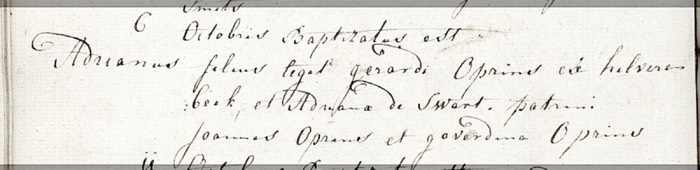 Smits
6 Octobris Baptizatus est
Adrianus filius legit gerardi Oprins ex hilveren
beek, et Adriana de Swart. patrini
Joannes Oprins et goverdina Oprins
11 Octobris Baptizat